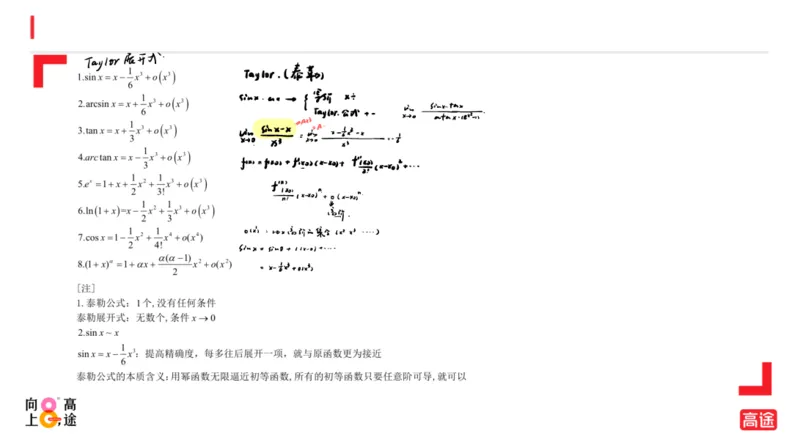 Taylor 展开式.
1.sin x = x − 1/6 x³ + o(x³)
2.arcsin x = x + 1/6 x³ + o(x³)
3.tan x = x + 1/3 x³ + o(x³)
4.arctan x = x − 1/3 x³ + o(x³)
5.eˣ = 1 + x + 1/2 x² + 1/3! x³ + o(x³)
6.ln(1+x)=x − 1/2 x² + 1/3 x³ + o(x³)
7.cos x = 1 − 1/2 x² + 1/4! x⁴ + o(x⁴)
8.(1+x)^α = 1 + αx + α(α−1)/2 x² + o(x²)
[注]
1. 泰勒公式：1个,没有任何条件
泰勒展开式：无数个,条件 x → 0
2.sin x ~ x
sin x = x − 1/6 x³：提高精确度，每多往后展开一项，就与原函数更为接近
泰勒公式的本质含义:用幂函数无限逼近初等函数,所有的初等函数只要任意阶可导,就可以
Taylor. (泰勒)
Taylor. 公式 + −
lim x→0 (sin x − x)/x³ = lim x→0 (x − 1/6 x³ − x)/x³
f(x) = f(x₀) + f'(x₀)(x−x₀) + f''(x₀)/2! (x−x₀)² + ⋯
f⁽ⁿ⁾(x₀)/n! (x−x₀)ⁿ + o(x−x₀)ⁿ
= x − 1/6 x³ + o(x³)
向上高途
高途